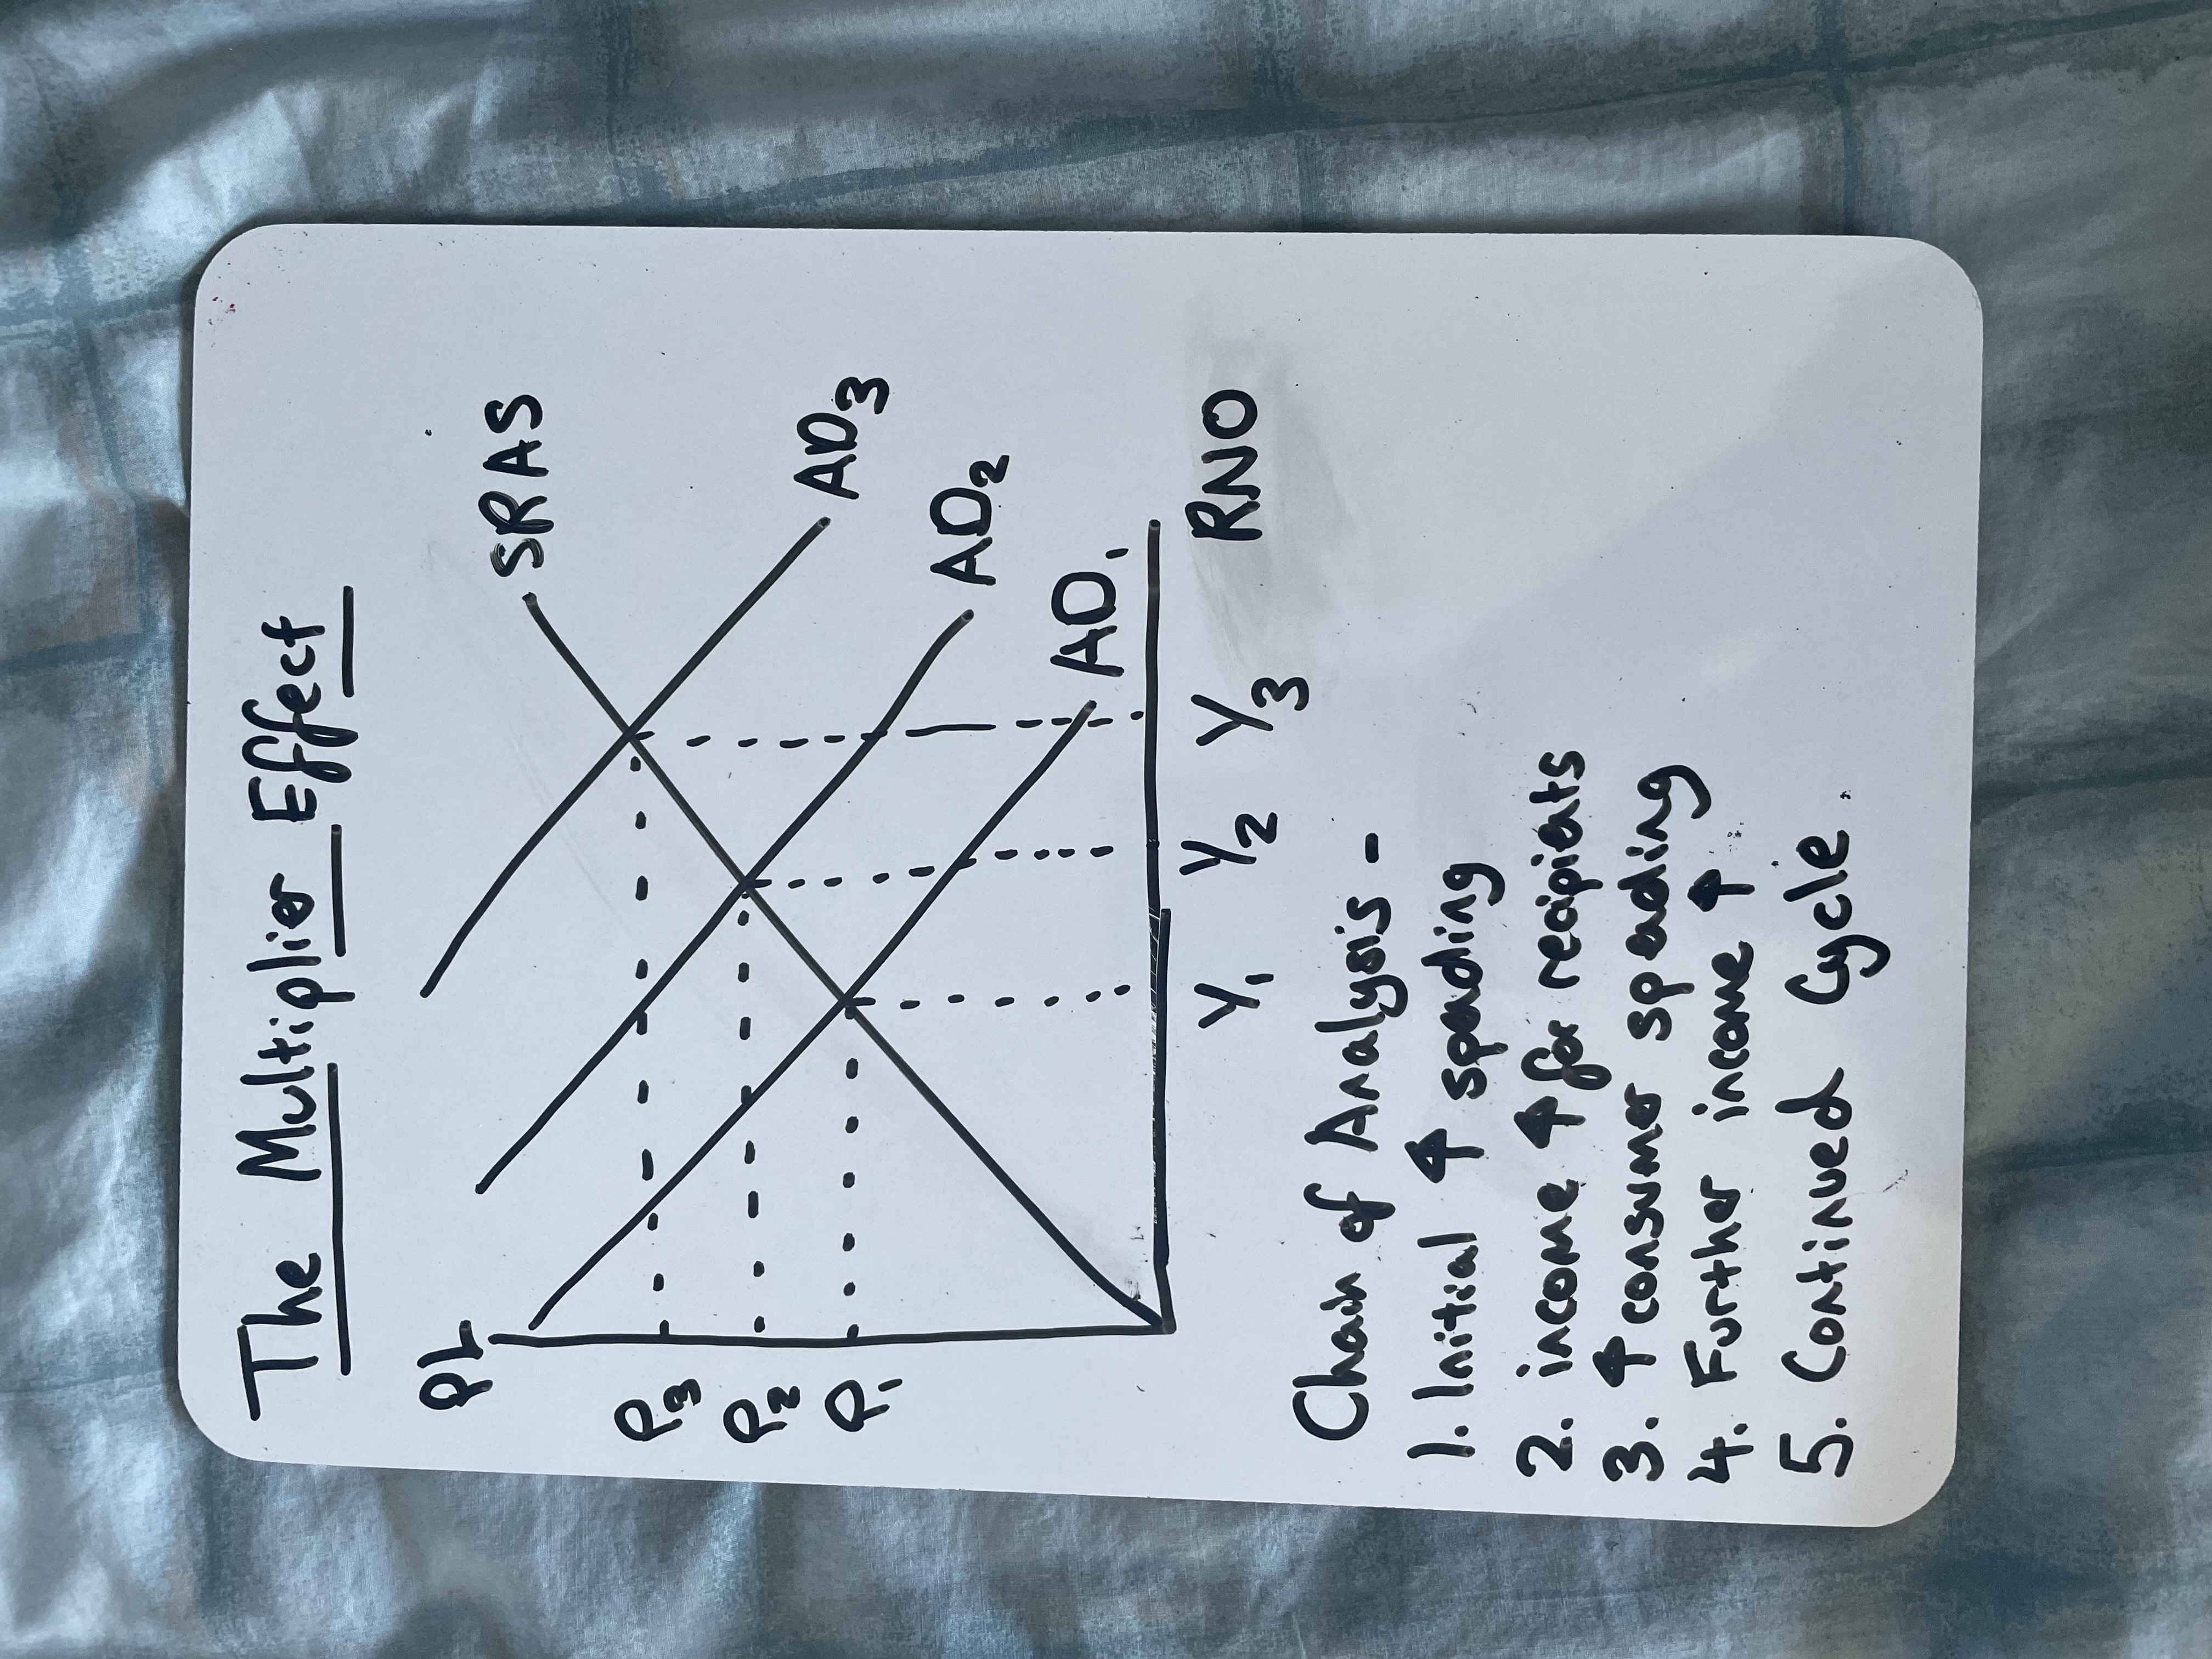 The Multiplier Effect
PL
SRAS
P3
AD3
P2
AD2
P1
AD1
Y1 Y2 Y3 RNO
Chain of Analysis -
1. Initial ↑ spending
2. income ↑ for recipients
3. ↑ consumer spending
4. Further income ↑
5. Continued Cycle.